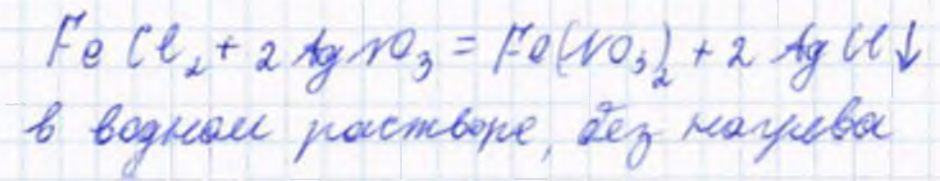 FeCl₂ + 2AgNO₃ = Fe(NO₃)₂ + 2AgCl↓
в водном растворе, без нагрева